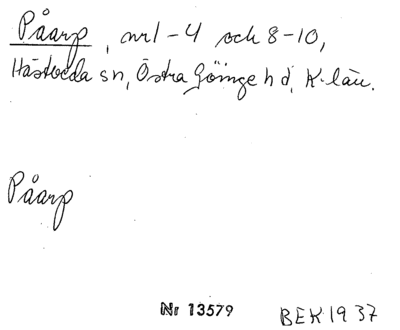 Påarp, nr 1-4 och 8-10,
Hästveda sn, Östra Göinge hd, K-län.
Påarp
Nr 13579
BEK 1937